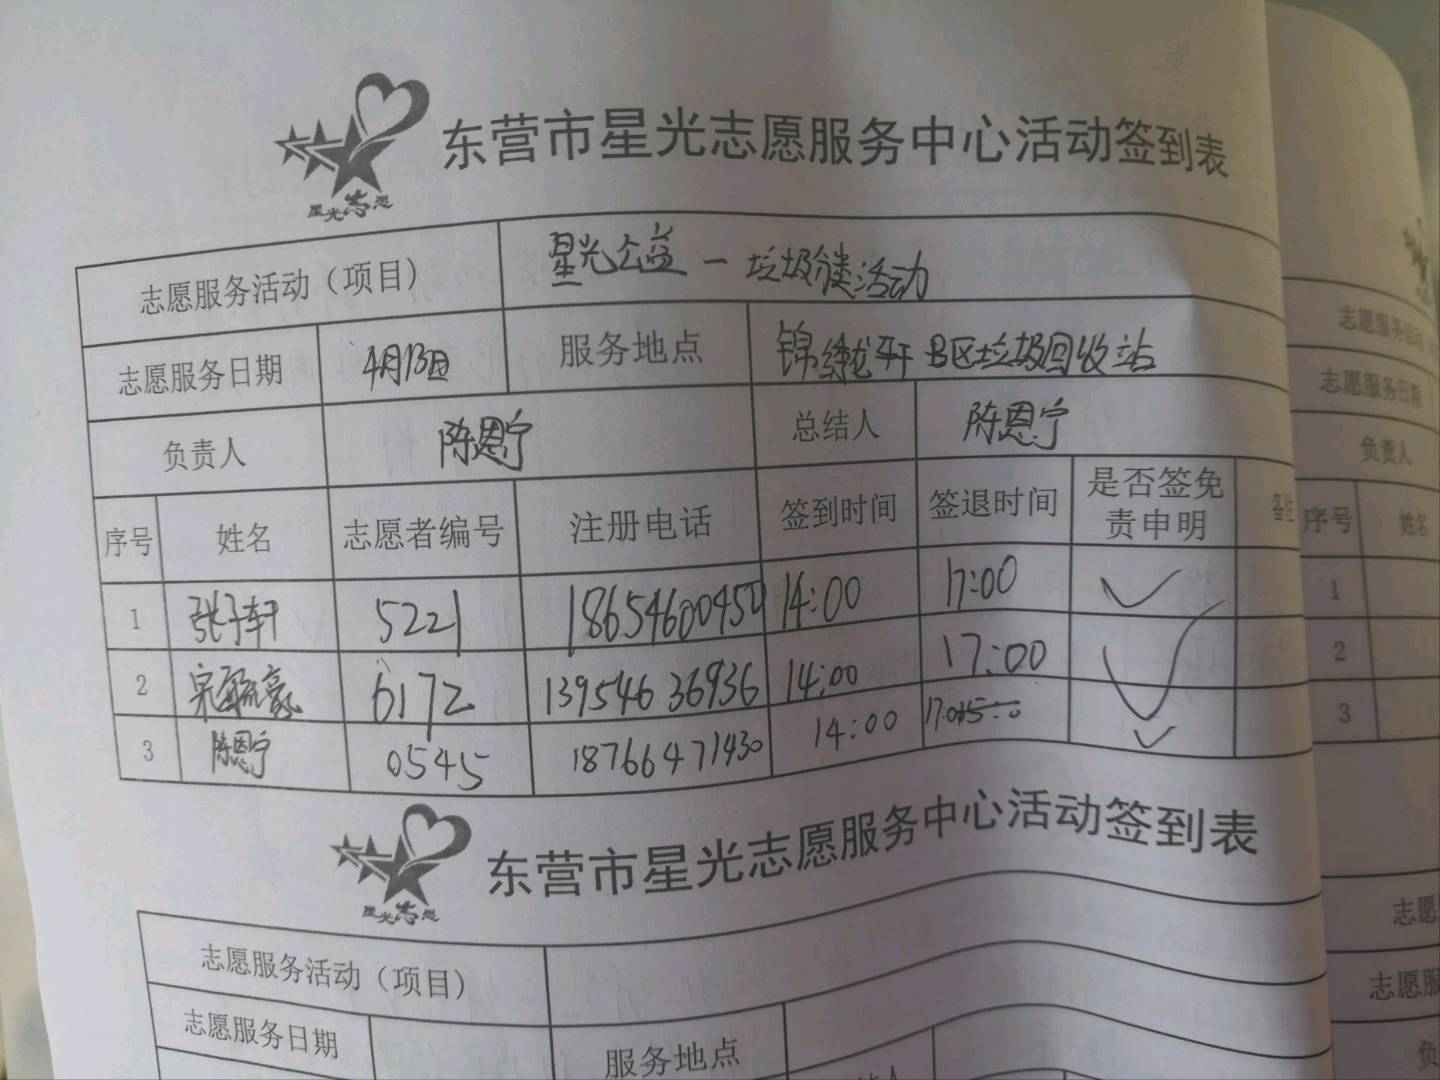 东营市星光志愿服务中心活动签到表
星光志愿
志愿服务活动（项目） 星光公益一垃圾分类活动
志愿服务日期 4月13日 服务地点 锦绣龙轩B区垃圾回收站
负责人 陈恩宁 总结人 陈恩宁
序号 姓名 志愿者编号 注册电话 签到时间 签退时间 是否签免责申明 备注
1 张子轩 5221 18654600450 14:00 17:00 ✓
2 6172 13954636936 14:00 17:00 ✓
3 陈恩宁 0545 18766471430 14:00 ✓
东营市星光志愿服务中心活动签到表
星光志愿
志愿服务活动（项目）
志愿服务日期 服务地点
志愿服务
志愿服务日期
负责人
序号 姓名
1
2
3
志愿
志愿服
负